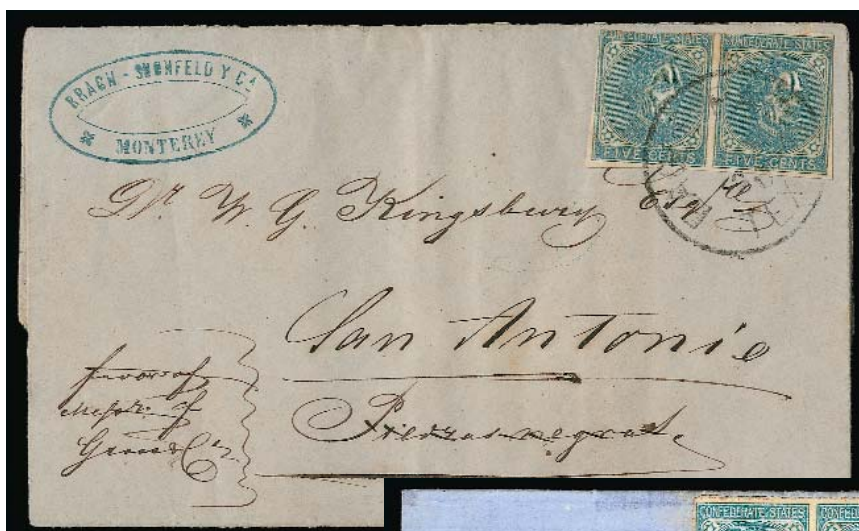 BRACH - SHONFELD Y Ca
MONTEREY
CONFEDERATE STATES
CONFEDERATE STATES
FIVE CENTS
FIVE CENTS
TEX
Dr. W. G. Kingsbury Esq
San Antonio
Piedras negras.
favor of
Messrs. of
Gross & Co
CONFEDERATE STATES